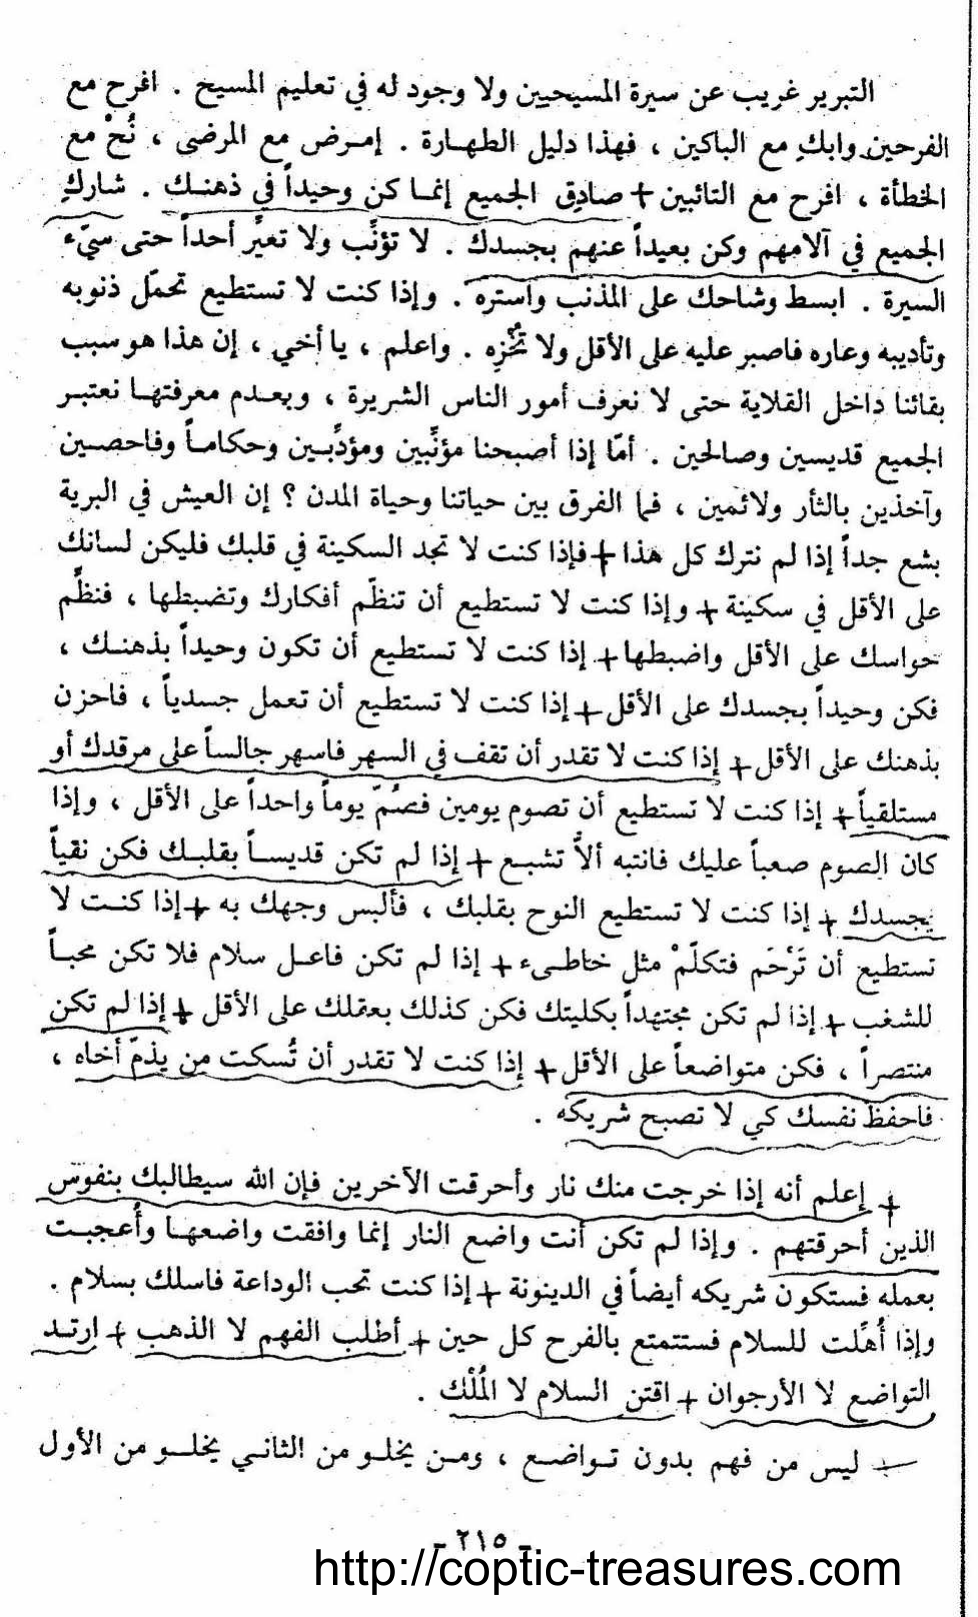 التبرير غريب عن سيرة المسيحيين ولا وجود له في تعليم المسيح . افرح مع
الفرحين وابكِ مع الباكين ، فهذا دليل الطهارة . إمرض مع المرضى ، نُحْ مع
الخطأة ، افرح مع التائبين + صادِق الجميع إنما كن وحيداً في ذهنك . شارك
الجميع في آلامهم وكن بعيداً عنهم بجسدك . لا تؤنِّب ولا تعيِّر أحداً حتى سيّء
السيرة . ابسط وشاحك على المذنب واستره . وإذا كنت لا تستطيع تحمّل ذنوبه
وتأديبه وعاره فاصبر عليه على الأقل ولا تُخْزِه . واعلم ، يا أخي ، إن هذا هو سبب
بقائنا داخل القلاية حتى لا نعرف أمور الناس الشريرة ، وبعدم معرفتها نعتبر
الجميع قديسين وصالحين . أمّا إذا أصبحنا مؤنِّبين ومؤدِّبين وحكاماً وفاحصين
وآخذين بالثأر ولائمين ، فما الفرق بين حياتنا وحياة المدن ؟ إن العيش في البرية
بشع جداً إذا لم نترك كل هذا + فإذا كنت لا تجد السكينة في قلبك فليكن لسانك
على الأقل في سكينة + وإذا كنت لا تستطيع أن تنظّم أفكارك وتضبطها ، فنظِّم
حواسك على الأقل واضبطها + إذا كنت لا تستطيع أن تكون وحيداً بذهنك ،
فكن وحيداً بجسدك على الأقل + إذا كنت لا تستطيع أن تعمل جسدياً ، فاحزن
بذهنك على الأقل + إذا كنت لا تقدر أن تقف في السهر فاسهر جالساً على مرقدك أو
مستلقياً + إذا كنت لا تستطيع أن تصوم يومين فصُمْ يوماً واحداً على الأقل ، وإذا
كان الصوم صعباً عليك فانتبه ألاَّ تشبع + إذا لم تكن قديساً بقلبك فكن نقياً
بجسدك + إذا كنت لا تستطيع النوح بقلبك ، فألبس وجهك به + إذا كنت لا
تستطيع أن تَرْحَم فتكلّمْ مثل خاطىء + إذا لم تكن فاعل سلام فلا تكن محباً
للشغب + إذا لم تكن مجتهداً بكليتك فكن كذلك بعقلك على الأقل + إذا لم تكن
منتصراً ، فكن متواضعاً على الأقل + إذا كنت لا تقدر أن تُسكت من يذمّ أخاه ،
فاحفظ نفسك كي لا تصبح شريكه .
+ إعلم أنه إذا خرجت منك نار وأحرقت الآخرين فإن الله سيطالبك بنفوس
الذين أحرقتهم . وإذا لم تكن أنت واضع النار إنما وافقت واضعها وأُعجبت
بعمله فستكون شريكه أيضاً في الدينونة + إذا كنت تحب الوداعة فاسلك بسلام .
وإذا أُهِّلت للسلام فستتمتع بالفرح كل حين + أطلب الفهم لا الذهب + ارتد
التواضع لا الأرجوان + اقتن السلام لا المُلْك .
+ ليس من فهم بدون تواضع ، ومن يخلو من الثاني يخلو من الأول
- ٢١٥ -
http://coptic-treasures.com